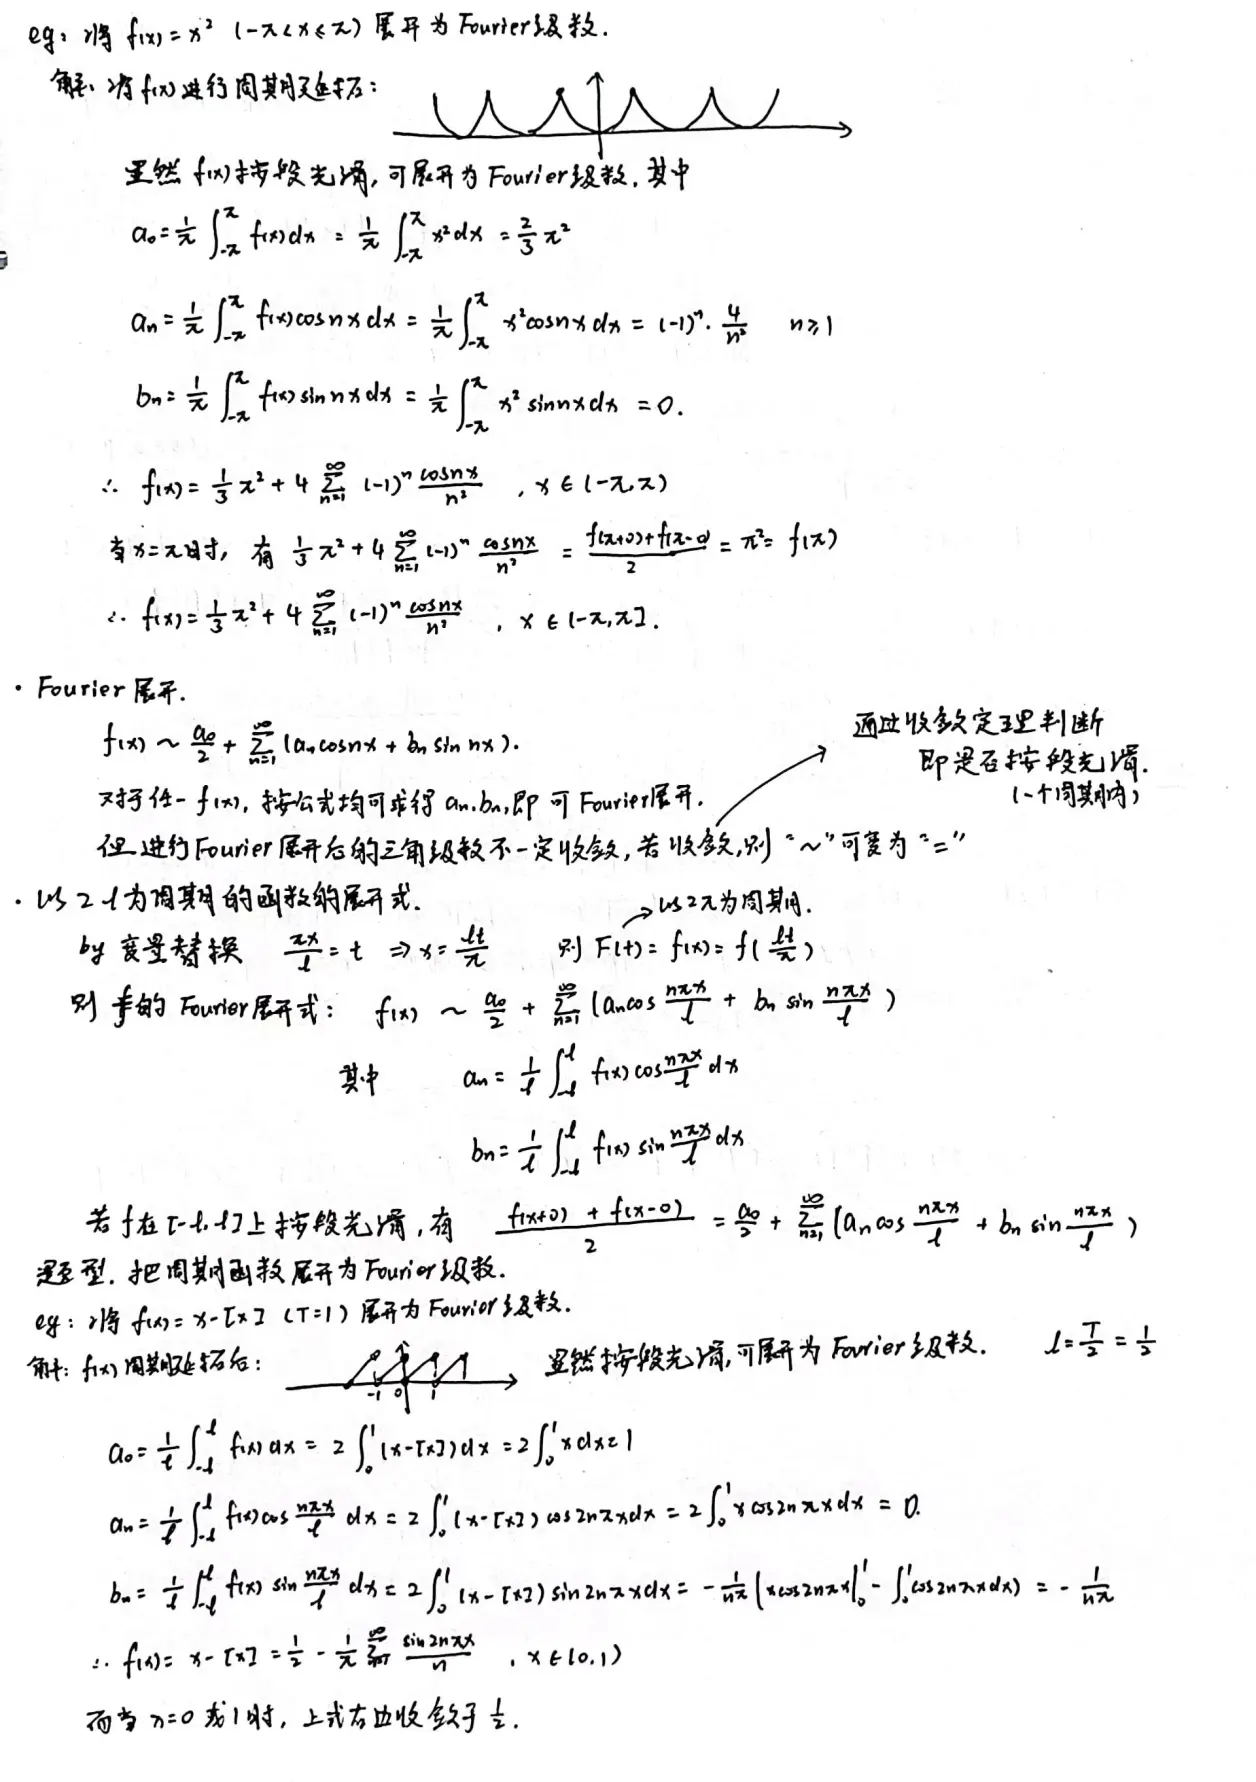 eg: 将 f(x) = x² (-π<x≤π) 展开为Fourier级数.
解: 将f(x)进行周期延拓:
显然 f(x)按段光滑, 可展开为 Fourier级数, 其中
a₀ = 1/π ∫_{-π}^{π} f(x)dx = 1/π ∫_{-π}^{π} x²dx = 2/3 π²
aₙ = 1/π ∫_{-π}^{π} f(x)cosnxdx = 1/π ∫_{-π}^{π} x²cosnxdx = (-1)ⁿ · 4/n² n≥1
bₙ = 1/π ∫_{-π}^{π} f(x)sinnxdx = 1/π ∫_{-π}^{π} x² sinnxdx = 0.
∴ f(x) = 1/3 π² + 4 ∑_{n=1}^{∞} (-1)ⁿ cosnx/n² , x∈(-π,π)
当x=π时, 有 1/3 π² + 4 ∑_{n=1}^{∞} (-1)ⁿ cosnx/n² = (f(π+0)+f(π-0))/2 = π² = f(π)
∴ f(x) = 1/3 π² + 4 ∑_{n=1}^{∞} (-1)ⁿ cosnx/n² , x∈(-π,π].
· Fourier 展开.
f(x) ~ a₀/2 + ∑_{n=1}^{∞} (aₙcosnx + bₙ sin nx).
通过收敛定理判断
即是否按段光滑.
(一个周期内)
对于任一 f(x), 按公式均可求得 aₙ.bₙ, 即可Fourier展开.
但进行Fourier展开后的三角级数不一定收敛, 若收敛, 则 "~" 可变为 "="
· 以 2l为周期的函数的展开式.
以2π为周期.
by 变量替换 πx/l = t ⇒ x = lt/π 则 F(t) = f(x) = f(lt/π)
则 f的 Fourier展开式: f(x) ~ a₀/2 + ∑_{n=1}^{∞} (aₙcos nπx/l + bₙ sin nπx/l)
其中 aₙ = 1/l ∫_{-l}^{l} f(x) cos nπx/l dx
bₙ = 1/l ∫_{-l}^{l} f(x) sin nπx/l dx
若 f 在 [-l,l] 上按段光滑, 有 (f(x+0) + f(x-0))/2 = a₀/2 + ∑_{n=1}^{∞} (aₙ cos nπx/l + bₙ sin nπx/l)
题型. 把周期函数展开为Fourier级数.
eg: 将 f(x) = x-[x] (T=1) 展开为Fourier级数.
解: f(x)周期延拓后: -1 0 1 显然按段光滑, 可展开为 Fourier级数. l = T/2 = 1/2
a₀ = 1/l ∫_{-l}^{l} f(x)dx = 2 ∫_0^1 (x-[x])dx = 2 ∫_0^1 xdx = 1
aₙ = 1/l ∫_{-l}^{l} f(x)cos nπx/l dx = 2 ∫_0^1 (x-[x]) cos2nπxdx = 2 ∫_0^1 xcos2nπxdx = 0.
bₙ = 1/l ∫_{-l}^{l} f(x) sin nπx/l dx = 2 ∫_0^1 (x-[x]) sin2nπxdx = -1/nπ (xcos2nπx|_0^1 - ∫_0^1 cos2nπxdx) = -1/nπ
∴ f(x) = x-[x] = 1/2 - 1/π ∑_{n=1}^{∞} sin2nπx/n , x∈(0,1)
而当 x=0 或1时, 上式右边收敛于 1/2.